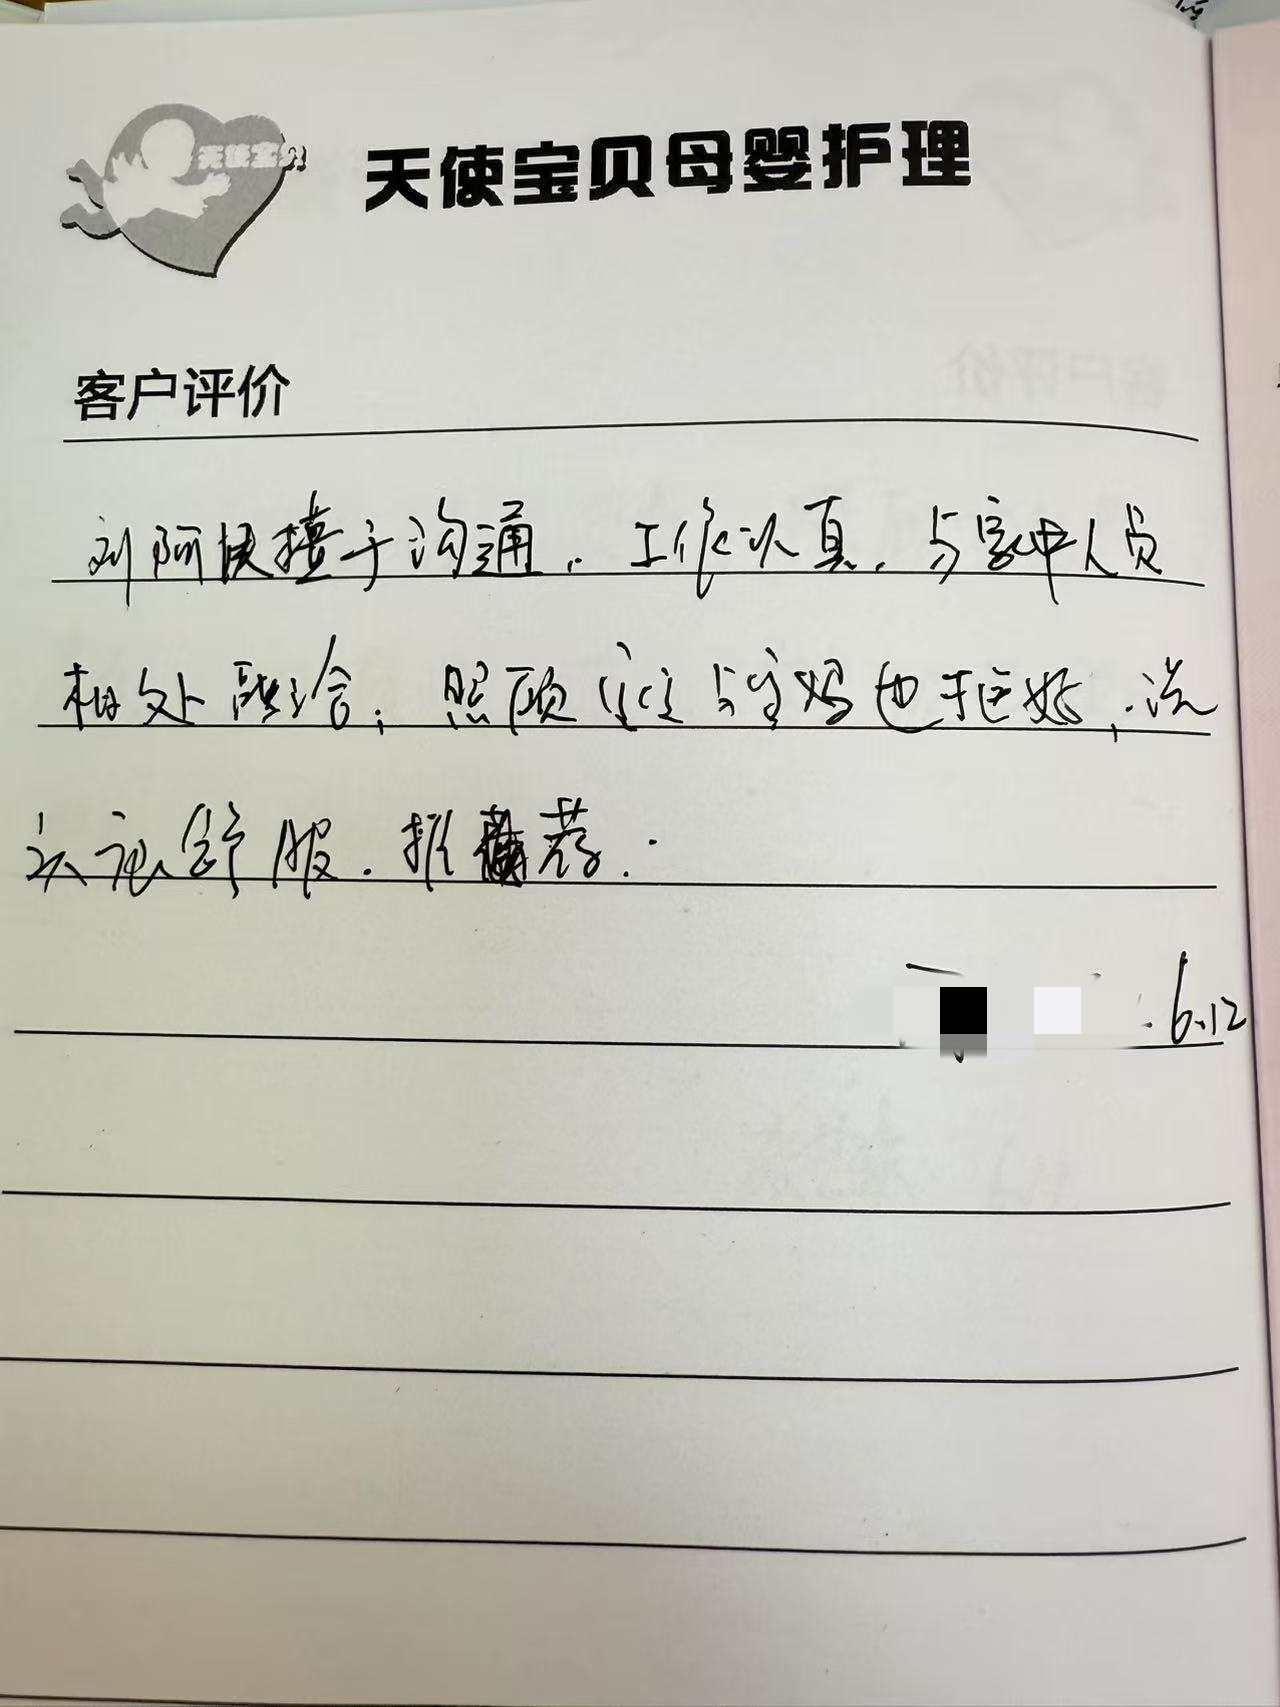 天使宝贝
天使宝贝母婴护理
客户评价
刘阿姨擅于沟通，工作认真，与家中人员
相处融洽，照顾宝宝与宝妈也挺好，
让 舒服．推荐．
6.12